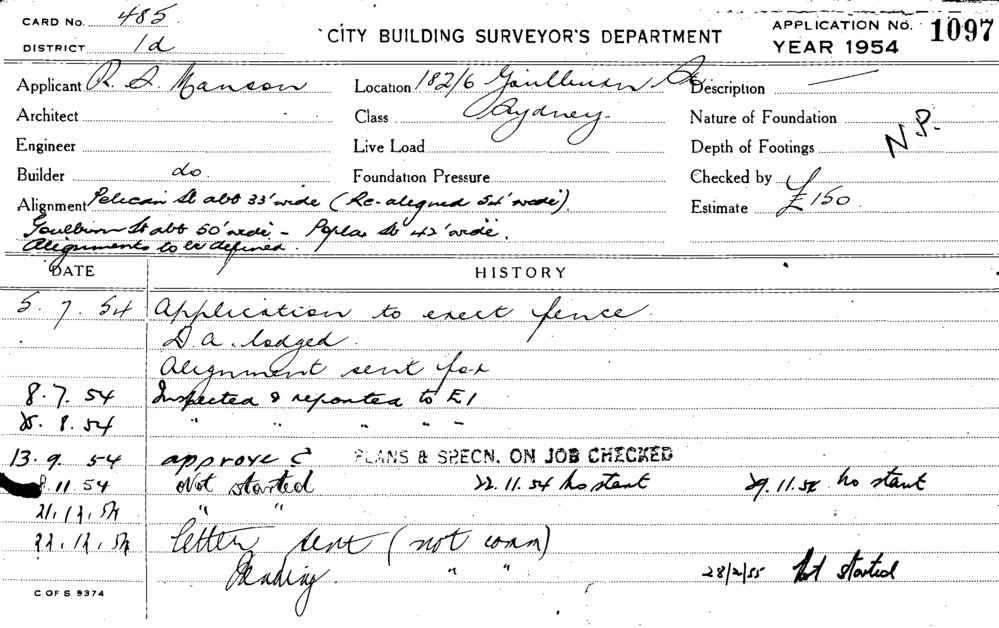 CARD No. 485
DISTRICT 1d
CITY BUILDING SURVEYOR'S DEPARTMENT
APPLICATION No. 1097
YEAR 1954
Applicant R. S. Manson Location 182/6 Goulburn St Description —
Architect Class Sydney Nature of Foundation
Engineer Live Load Depth of Footings N.P.
Builder do Foundation Pressure Checked by
Alignment Pelican St abt 33' wide (Re-aligned 54' wide). Estimate £150
Goulburn St abt 50' wide – Poplar St 42' wide.
Alignments to be defined.
DATE HISTORY
5. 7. 54 Application to erect fence
D.A. lodged.
Alignment sent for
8. 7. 54 Inspected & reported to E1
8. 54 " " " " –
13. 9. 54 approve PLANS & SPECN. ON JOB CHECKED
11. 54 Not started 22.11.54 no start 29.11.54 no start
21.12.54 " "
22.12.54 letter sent (not comm)
Pending. " " 28/2/55 Not started
C OF S 9374